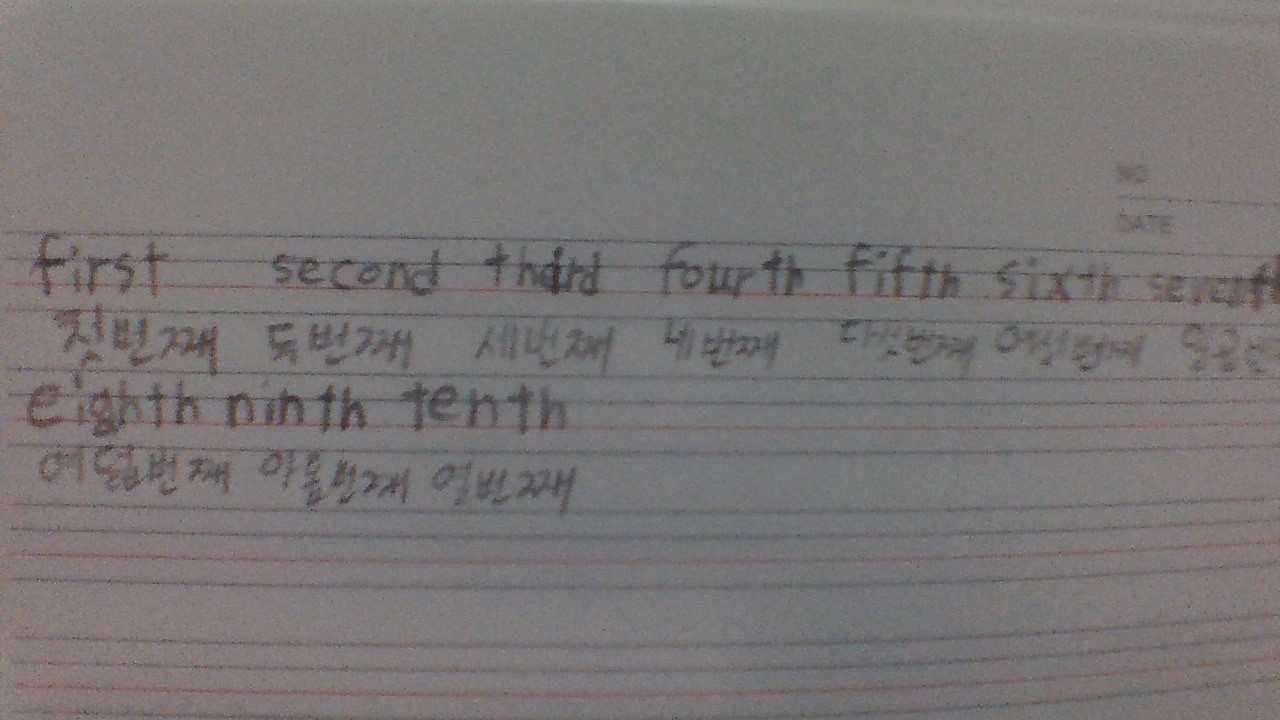 NO
DATE
first second third fourth fifth sixth seventh
첫번째 두번째 세번째 네번째 다섯번째 여섯번째 일곱번
eighth ninth tenth
여덟번째 아홉번째 열번째